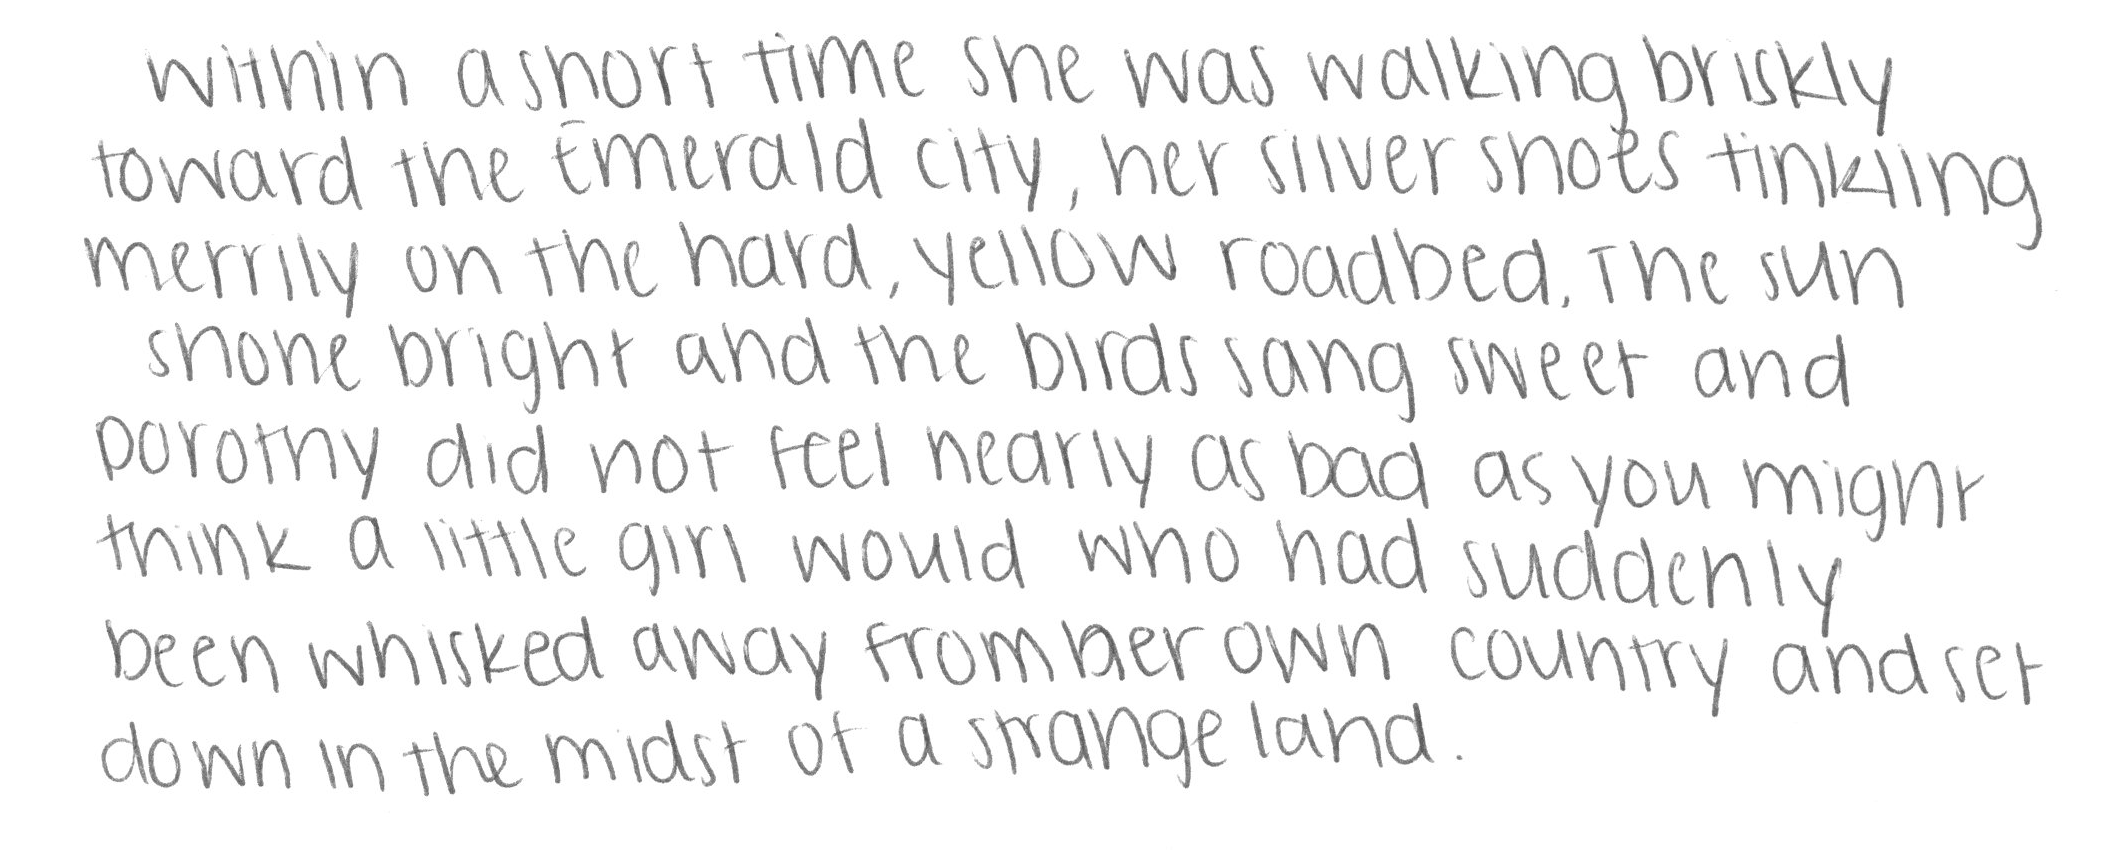 Within a short time she was walking briskly
toward the Emerald City, her silver shoes tinkling
merrily on the hard, yellow roadbed. The sun
shone bright and the birds sang sweet and
Dorothy did not feel nearly as bad as you might
think a little girl would who had suddenly
been whisked away from her own country and set
down in the midst of a strange land.